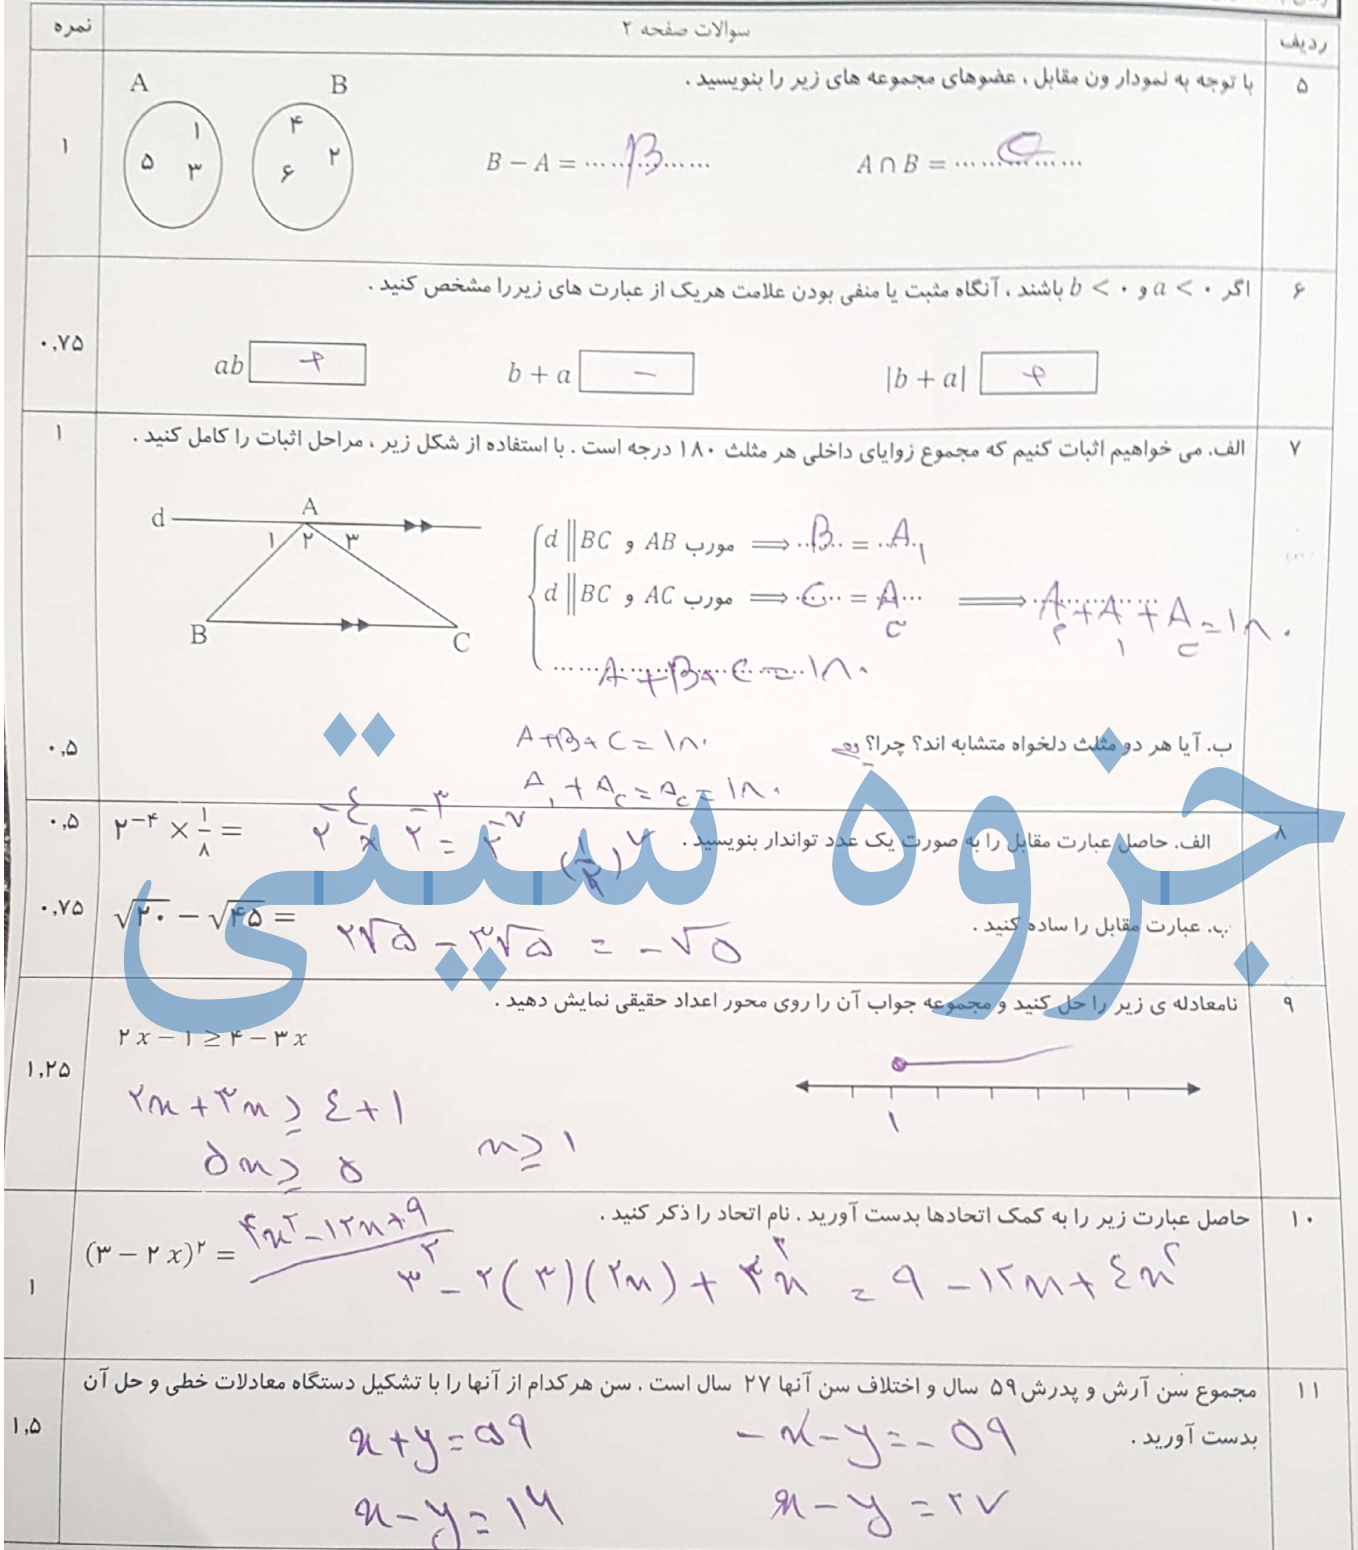 نمره
سوالات صفحه ۲
ردیف
۵
با توجه به نمودار ون مقابل ، عضوهای مجموعه های زیر را بنویسید .
۱
A B
۱ ۵ ۳
۴ ۲ ۶
B − A = ......B......
A ∩ B = ............
۶
اگر a < ۰ و b < ۰ باشند ، آنگاه مثبت یا منفی بودن علامت هریک از عبارت های زیررا مشخص کنید .
۰,۷۵
ab + b + a − |b + a| +
۷
الف. می خواهیم اثبات کنیم که مجموع زوایای داخلی هر مثلث ۱۸۰ درجه است . با استفاده از شکل زیر ، مراحل اثبات را کامل کنید .
۱
d A
۱ ۲ ۳
B C
d ∥ BC و AB مورب ⟹ B = A۱
d ∥ BC و AC مورب ⟹ C = A۳ ⟹ A۲ + A۱ + A۳ = ۱۸۰
A + B + C = ۱۸۰
ب. آیا هر دو مثلث دلخواه متشابه اند؟ چرا؟
۰,۵
A + B + C = ۱۸۰
A۱ + A۳ = A۳ = ۱۸۰
۸
الف. حاصل عبارت مقابل را به صورت یک عدد تواندار بنویسید .
۰,۵
۲^−۴ × ۱/۸ = ۲^−۴ × ۲^−۳ = ۲^−۷ (۱/۲)^۷
ب. عبارت مقابل را ساده کنید .
۰,۷۵
√۲۰ − √۴۵ = ۲√۵ − ۳√۵ = −√۵
۹
نامعادله ی زیر را حل کنید و مجموعه جواب آن را روی محور اعداد حقیقی نمایش دهید .
۱,۲۵
۲x − ۱ ≥ ۴ − ۳x
۲x + ۳x ≥ ۴ + ۱
۵x ≥ ۵ x ≥ ۱
۱
۱۰
حاصل عبارت زیر را به کمک اتحادها بدست آورید . نام اتحاد را ذکر کنید .
۱
(۳ − ۲x)^۲ = ۴x^۲ − ۱۲x + ۹
۳^۲ − ۲(۳)(۲x) + ۴x^۲ = ۹ − ۱۲x + ۴x^۲
۱۱
مجموع سن آرش و پدرش ۵۹ سال و اختلاف سن آنها ۲۷ سال است . سن هرکدام از آنها را با تشکیل دستگاه معادلات خطی و حل آن
بدست آورید .
۱,۵
x + y = ۵۹ − x − y = − ۵۹
x − y = ۱۶ x − y = ۲۷
جزوه سیتی